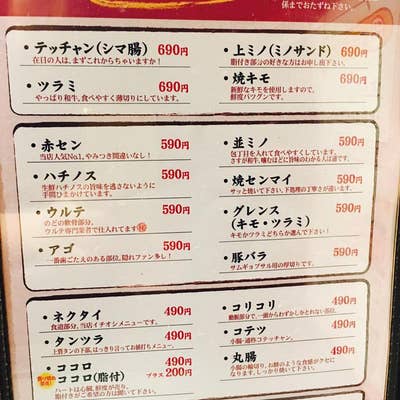 係までおたずね下さい。
・テッチャン(シマ腸) 690円
在日の人は、まずこれからちゃいますか!
・ツラミ 690円
やっぱり和牛、食べやすく薄切りにしています。
・上ミノ(ミノサンド) 690円
脂付き部分の好きな方はお申し出下さい。
・焼キモ 690円
新鮮なキモを使用しますので、
鮮度バツグンです。
・赤セン 590円
当店人気No.1、やみつき間違いなし!
・ハチノス 590円
生鮮ハチノスの旨味を逃さないように
手間ひまかけています。
・ウルテ 590円
のどの軟骨部分。
ウルテ専門業者で仕入れてます
・アゴ 590円
一番歯ごたえのある部位、隠れファン多し!
・並ミノ 590円
包丁目を入れて食べやすくしています。
さすが和牛、噛むほどに旨味のわかる人は通です。
・焼センマイ 590円
サッと焼いて下さい、下処理の丁寧さが違います。
・グレンス
(キモ・ツラミ) 590円
キモかツラミどちらか選んで下さい!
・豚バラ 590円
サムギョプサル用の厚切りです。
・ネクタイ 490円
食道部分、当店イチオシメニューです。
・タンツラ 490円
上皆タンの下部、はっきり言ってお値打ちメニュー。
・ココロ 490円
ココロ(脂付) プラス200円
ハートは心臓、鮮度が売り。
脂付きがご希望の方は声掛け下さい!
・コリコリ 490円
動脈部分で、一頭からわずかしかとれない部位。
・コテツ 490円
小腸・通称コテッチャン。
・丸腸 490円
小腸の輪切り、お餅のような食感がクセに
なります。しっかり焼いて下さい。